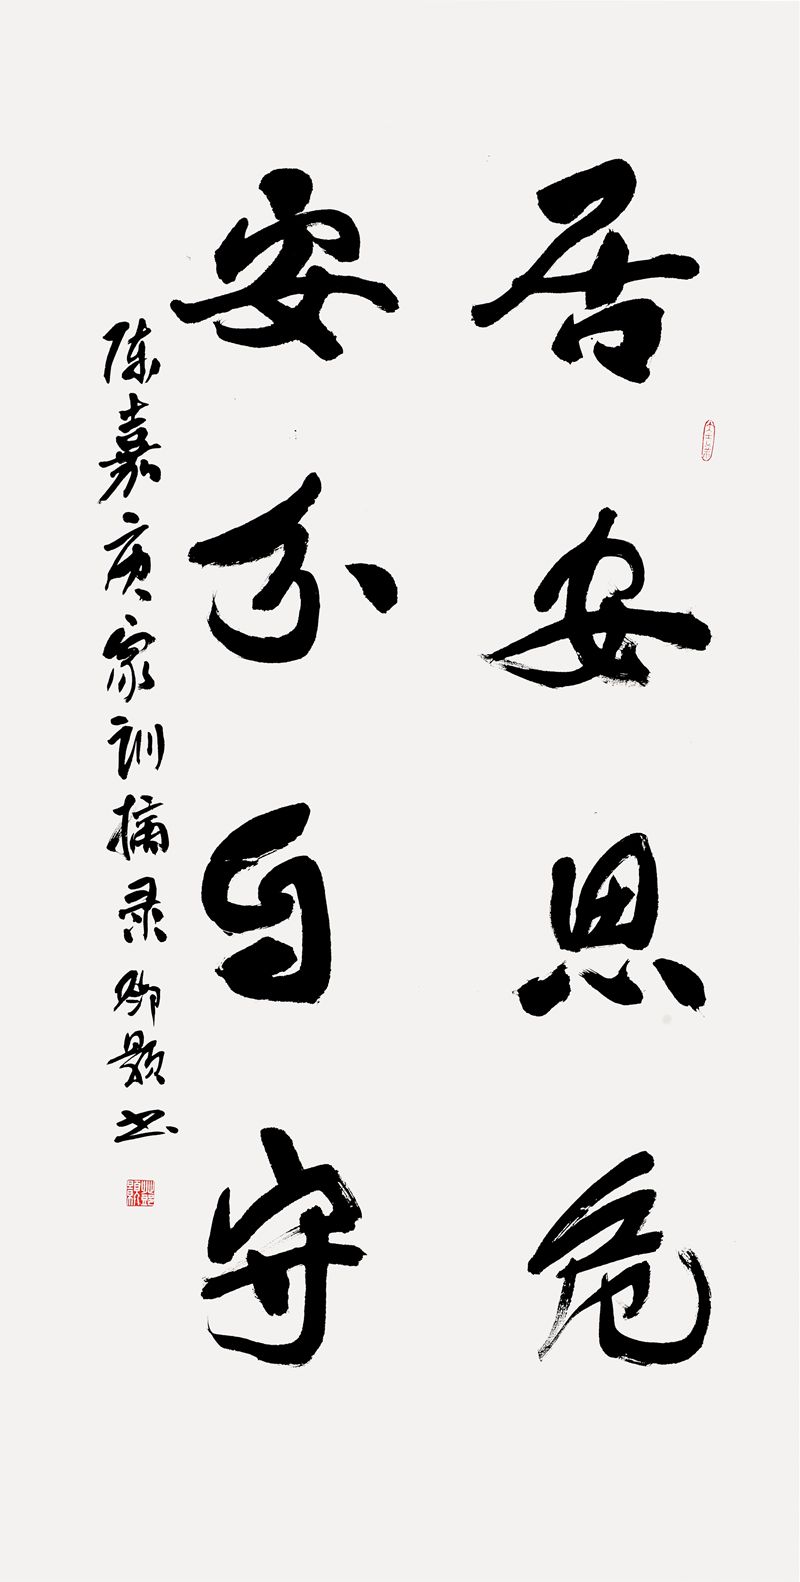 居安思危
安分自守
陈嘉庚家训摘录 卿颢书